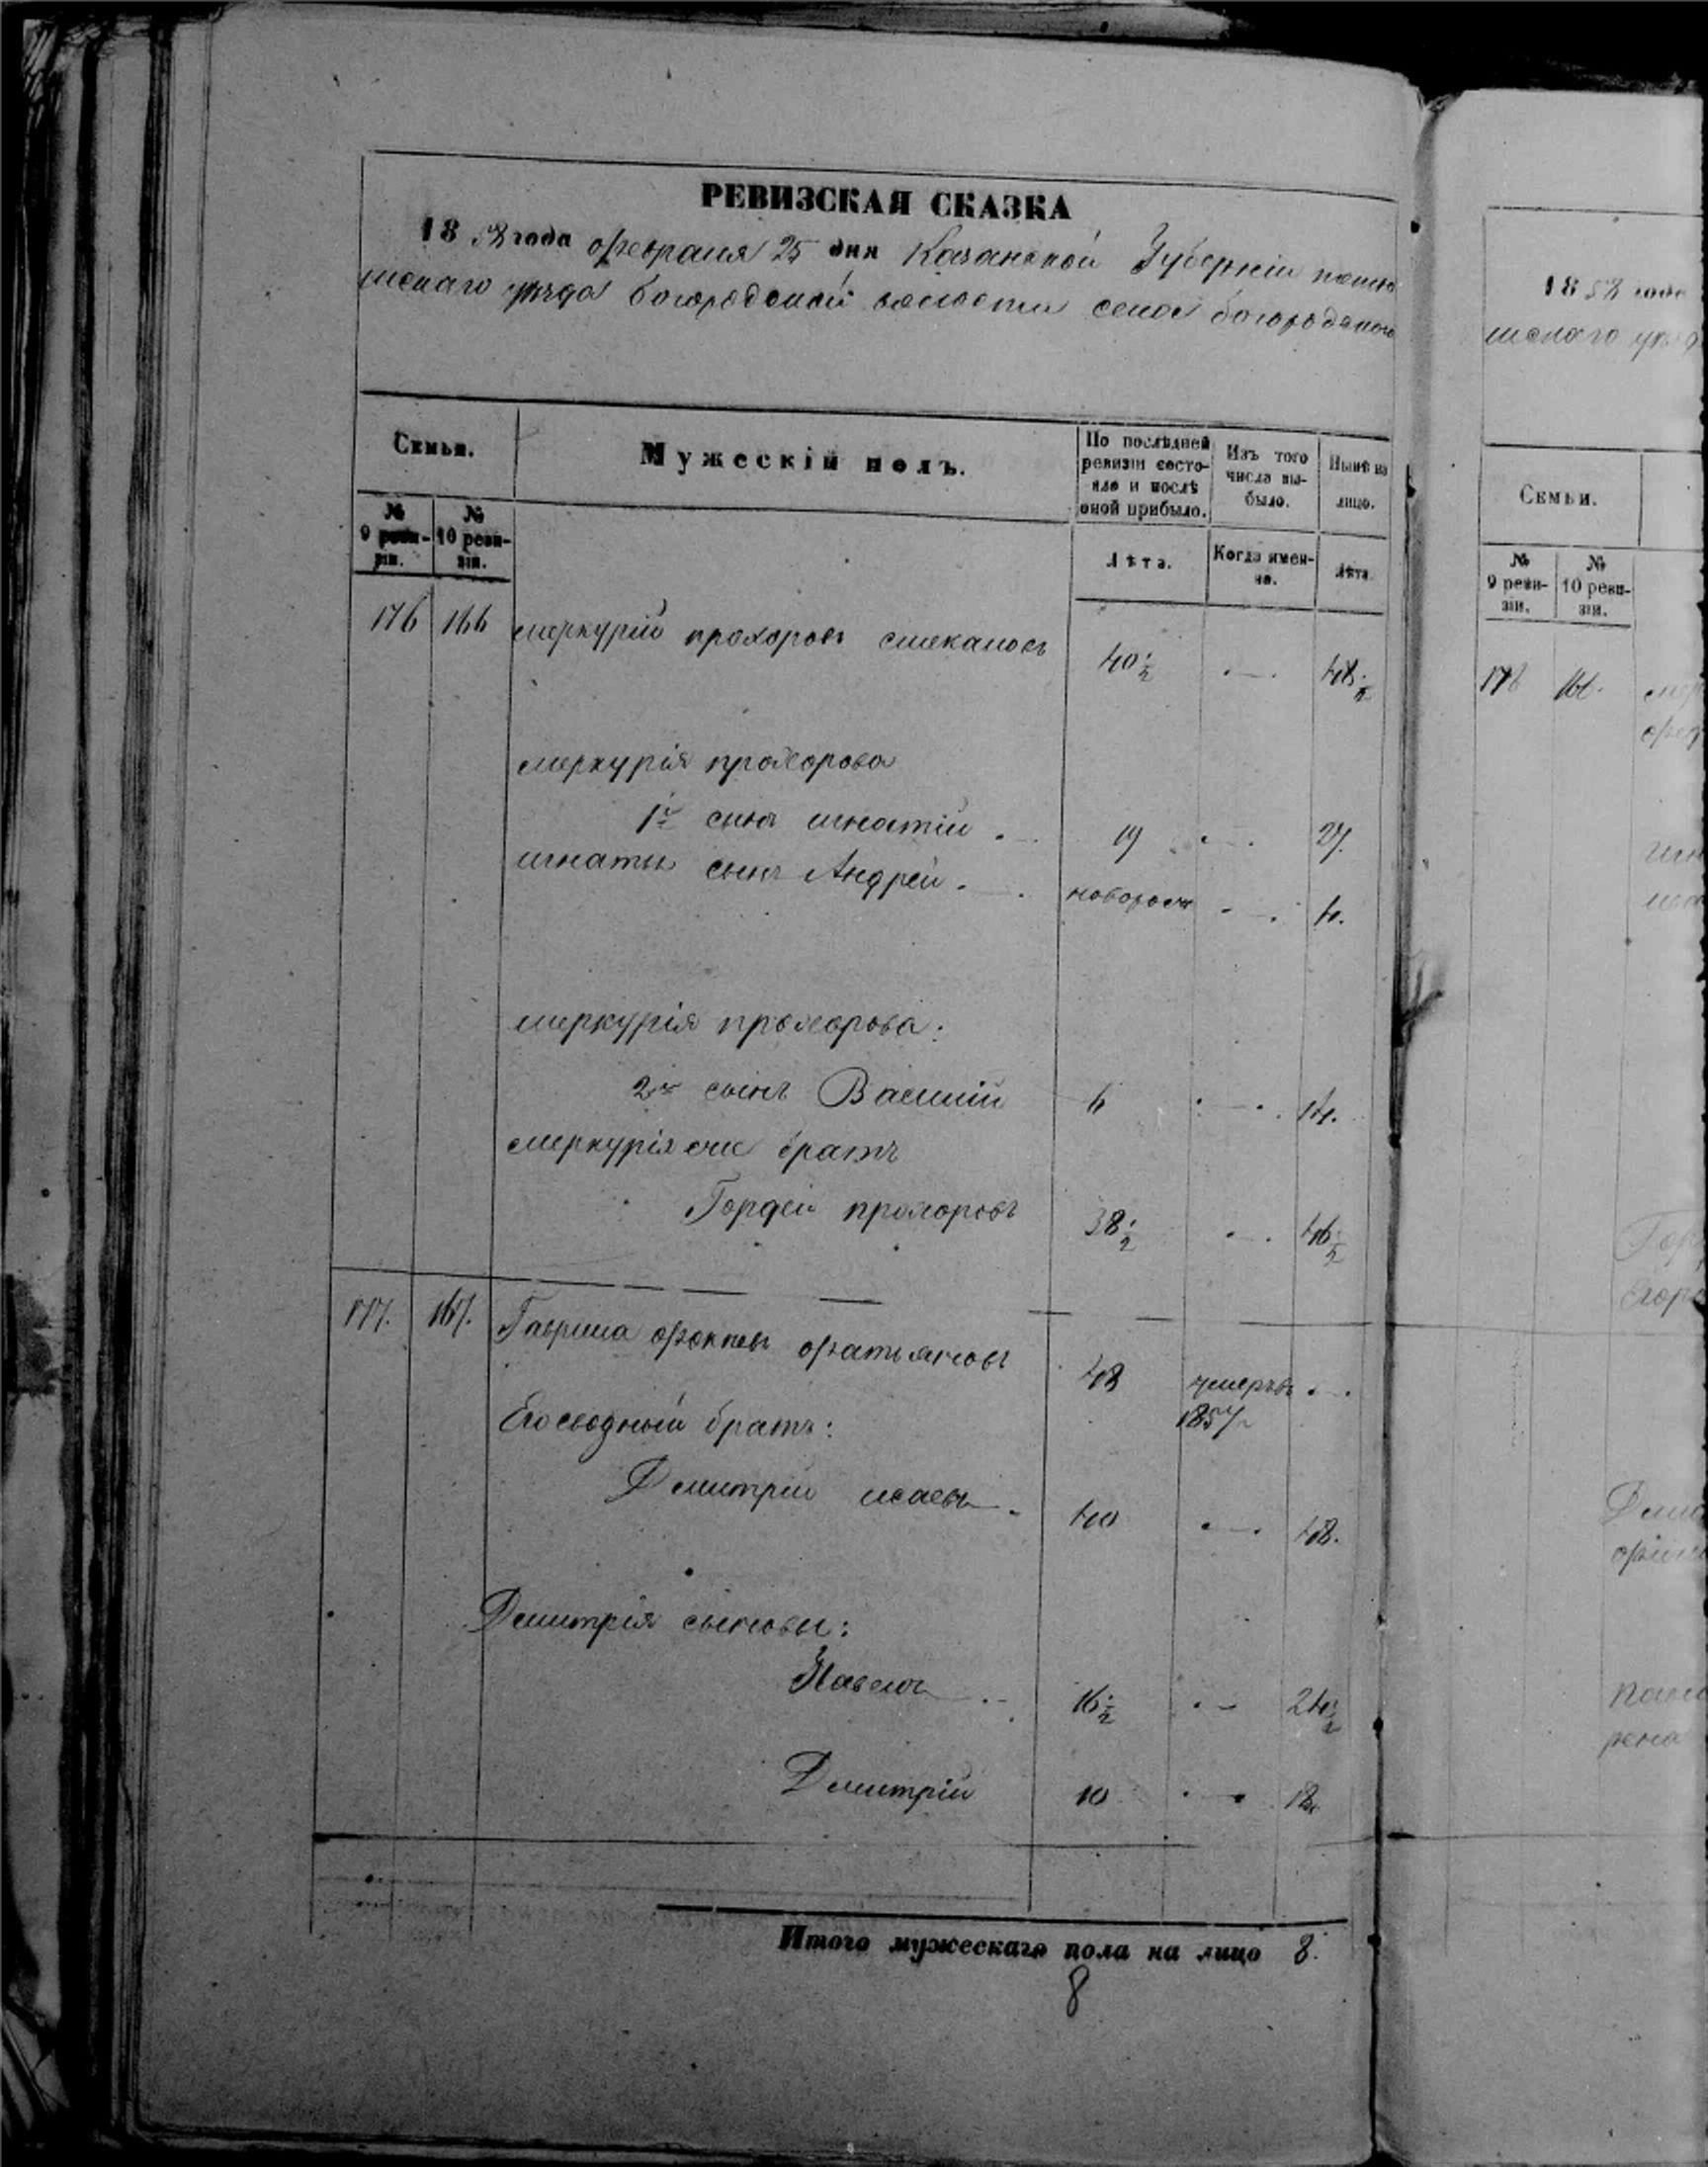 РЕВИЗСКАЯ СКАЗКА
18 58 года февраля 25 дня Казанской Губерніи
шскаго уѣзда богородской волости села богородскаго
Семьи.
Мужескій полъ.
По послѣдней ревизіи состояло и послѣ оной прибыло.
Изъ того числа выбыло.
Нынѣ на лицо.
№ 9 ревизіи.
№ 10 ревизіи.
Лѣта.
Когда именно.
Лѣта.
176 166 меркурій прохоровъ 40 1/2 48 1/2
меркурія прохорова
1й сынъ игнатій 19 27.
игнатья сынъ Андрей новорож 4.
меркурія прохорова:
2й сынъ Василій 6 14.
меркурія брать
Гордей прохоровъ 38 1/2 46 1/2
177. 167. Гаврила фокѣевъ фатьяновъ 48 умеръ въ
1857
Его сводный братъ:
Дмитрій исаевъ 40 48.
Дмитрія сыновья:
Павелъ 16 1/2 24 1/2
Дмитрій 10 18.
Итого мужескаго пола на лицо 8.
8
18 58 года
шскаго уѣзд
Семьи.
№ 9 ревизіи.
№ 10 ревизіи.
176 166.